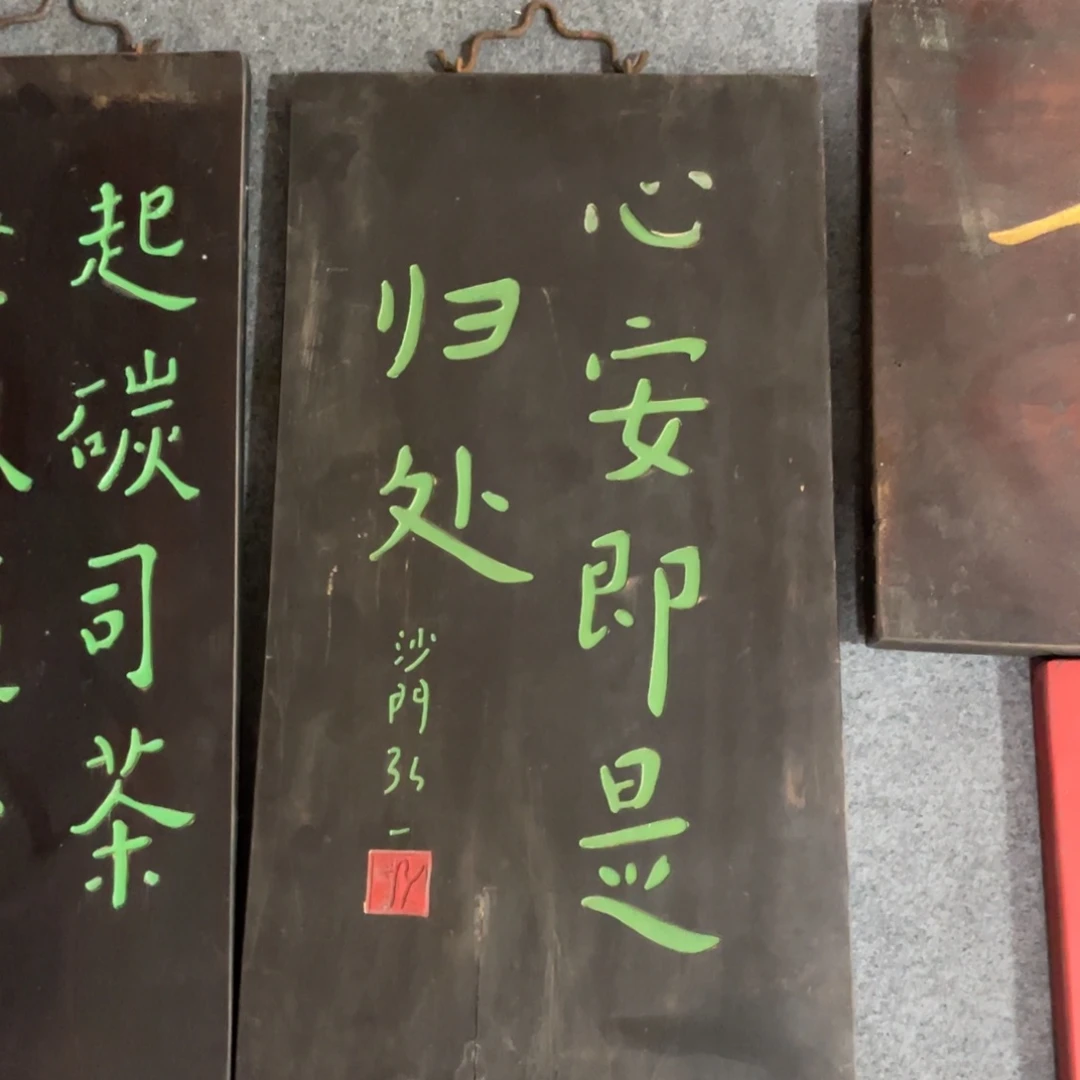 心安即是
归处
沙門弘一
起碳司茶